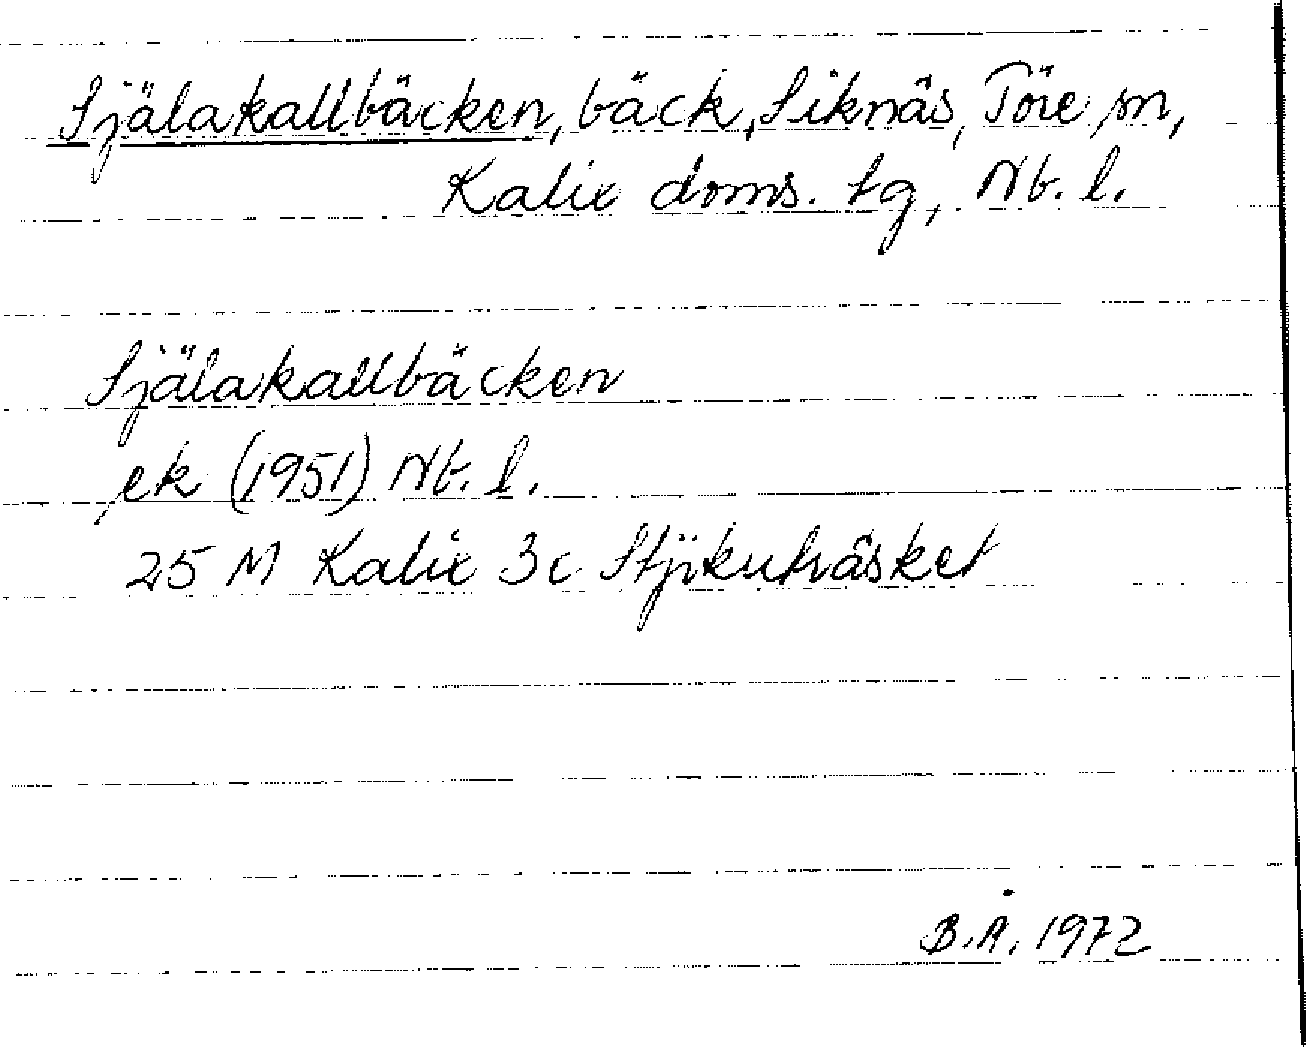 Själakallbäcken, bäck, Siknäs, Töre sn,
Kalix doms. tg, Nb. l.
Själakallbäcken
ek (1951) Nb. l.
25 M Kalix 3c Stjikuträsket
B.Å. 1972